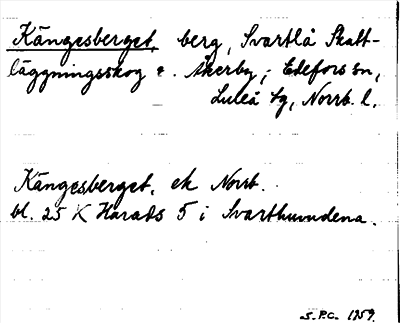 Kängesberget, berg, Svartlå Skatt-
läggningsskog o. Åkerby, Edefors sn,
Luleå tg, Norrb. l.
Kängesberget, ek Norrb.
bl. 25 K Harads 5 i Svarthuvudena.
S.P.C. 1959.